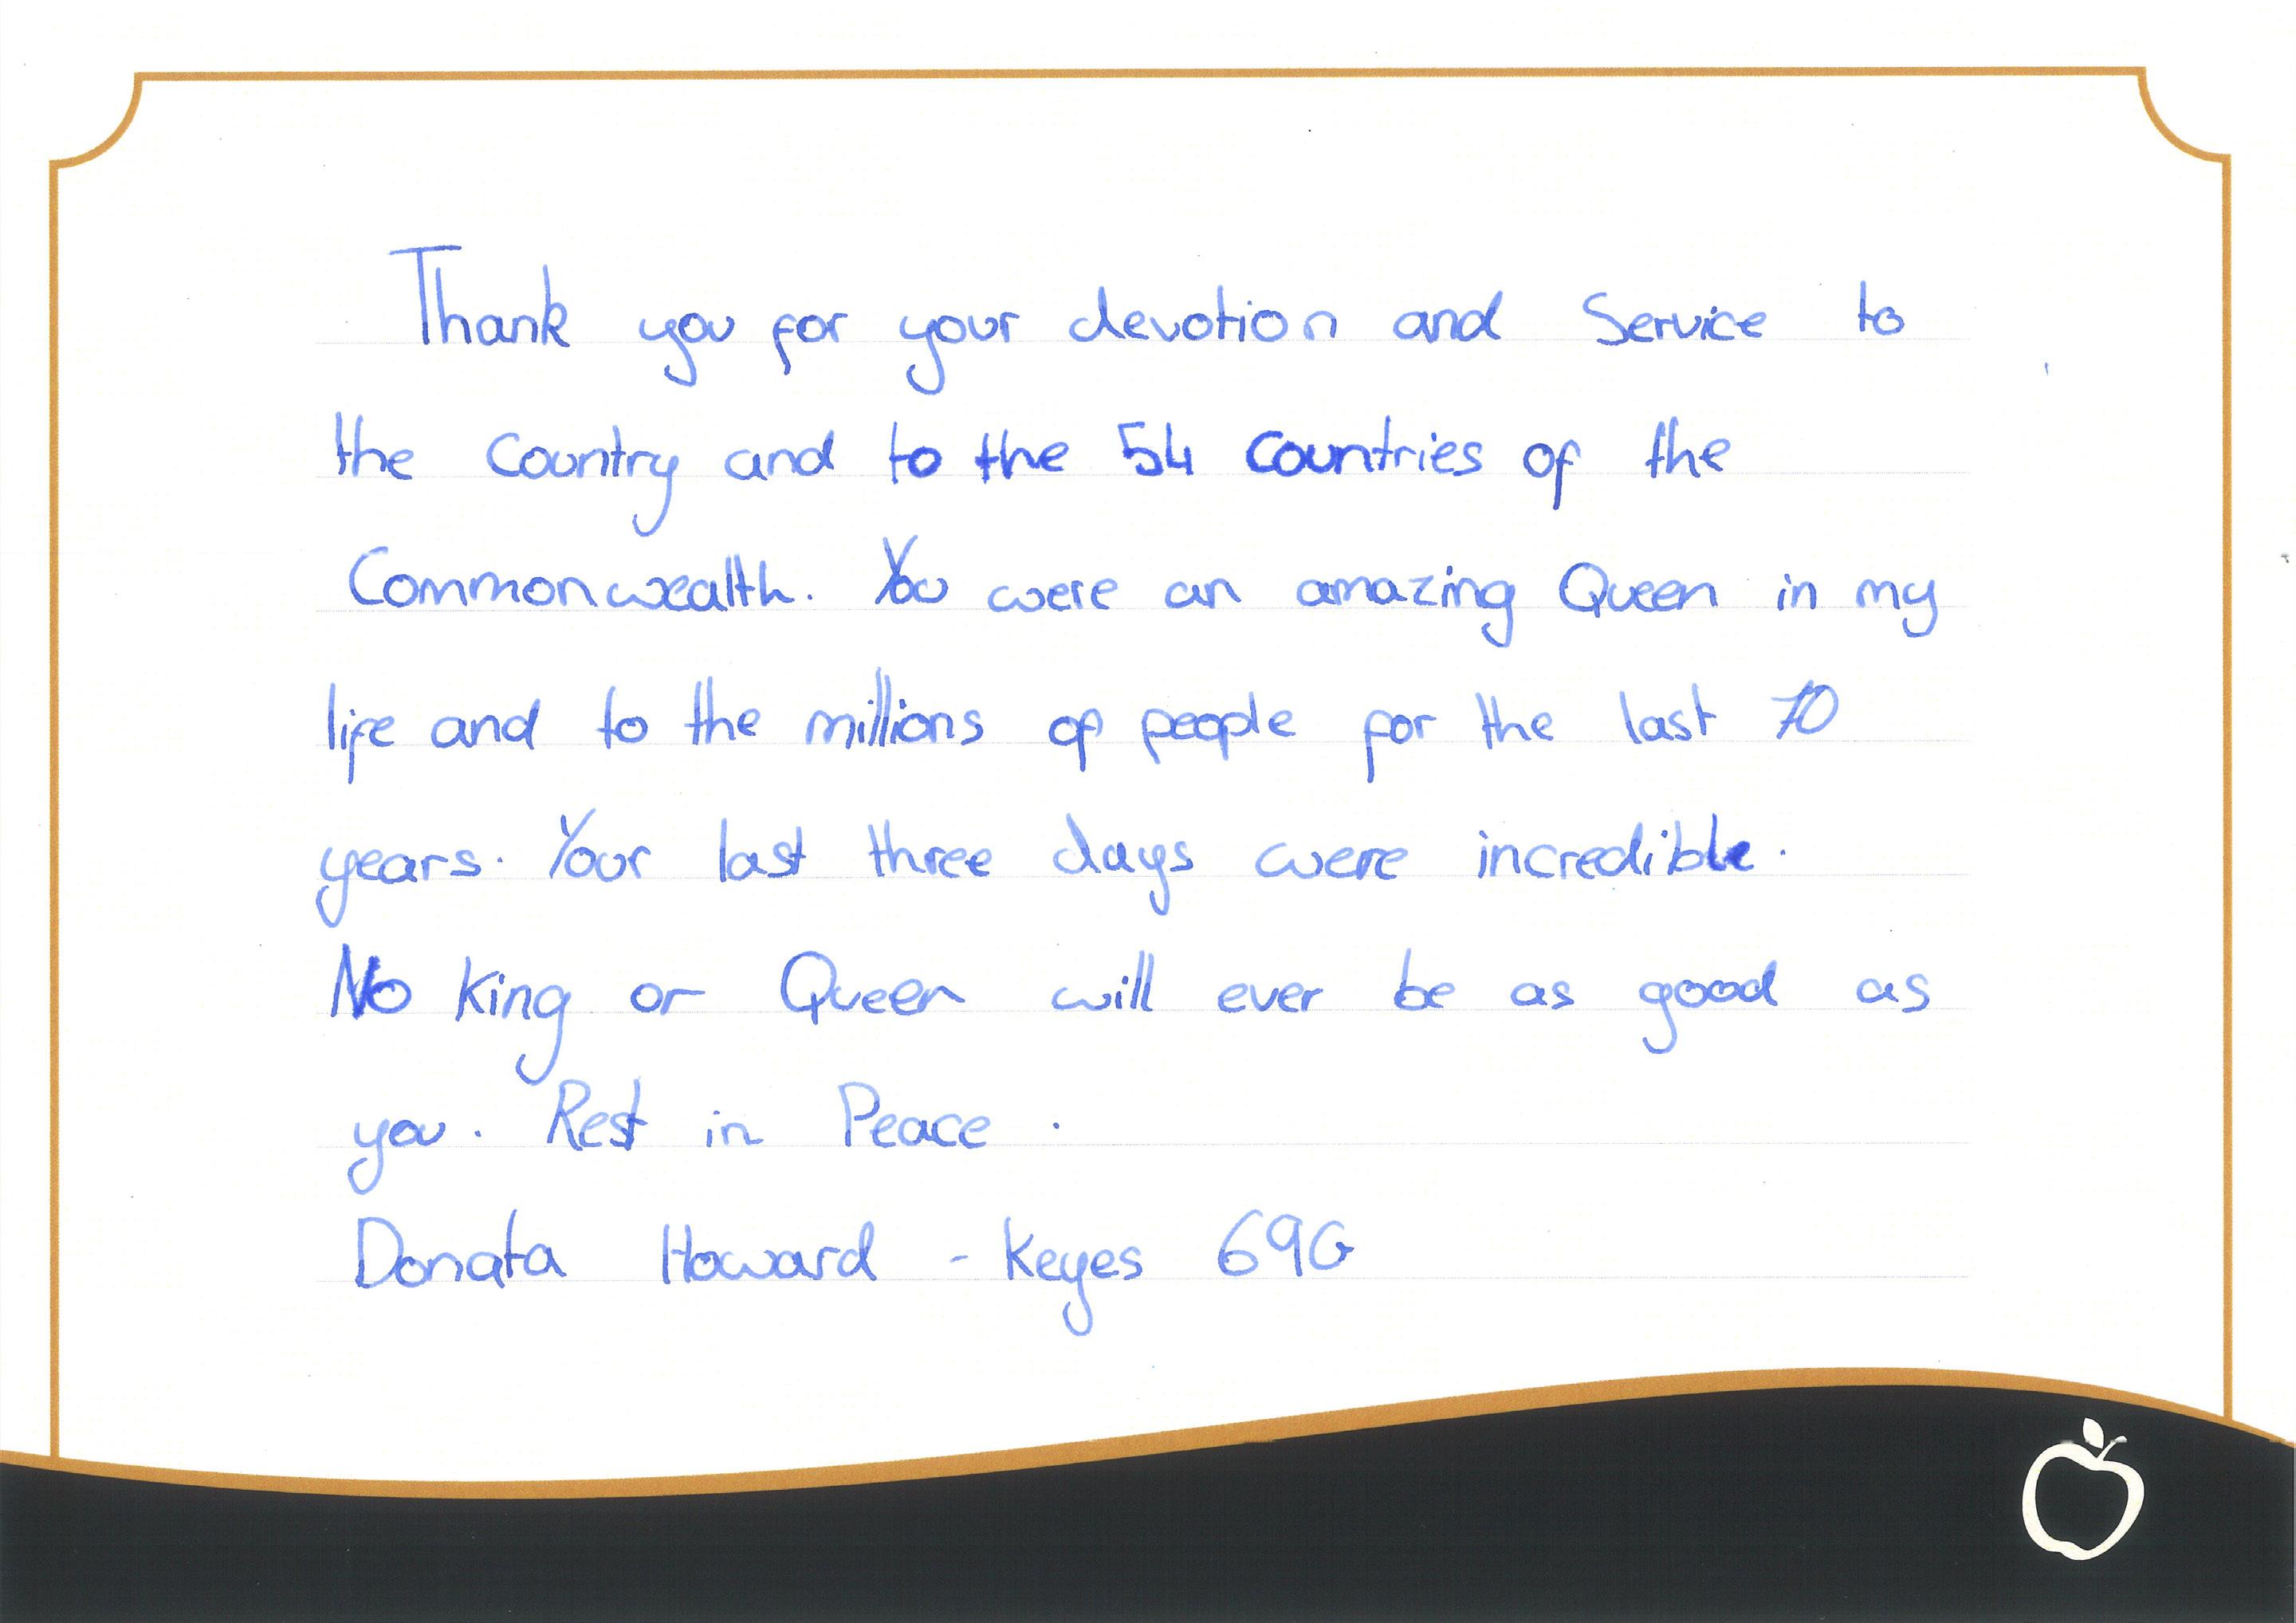 Thank you for your devotion and Service to
the Country and to the 54 Countries of the
Commonwealth. You were an amazing Queen in my
life and to the millions of people for the last 70
years. Your last three days were incredible.
No King or Queen will ever be as good as
you. Rest in Peace.
Donata Howard - Keyes 69G